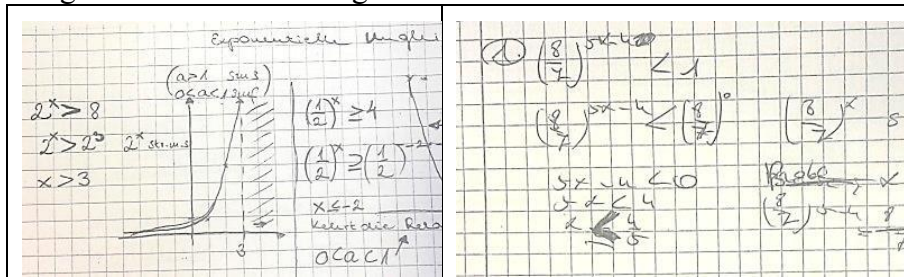 Exponentielle Unglei
(a>1 sms
0<a<1 smf)
2^x > 8
2^x > 2^3
2^x str.m.s
x > 3
3
(1/2)^x ≥ 4
(1/2)^x ≥ (1/2)^-2
x ≤ -2
Kehrt die Rela
0<a<1
1. (8/7)^5x-4 < 1
(8/7)^5x-4 < (8/7)^0
(8/7)^x s
5x-4 < 0
5x < 4
x < 4/5
Probe